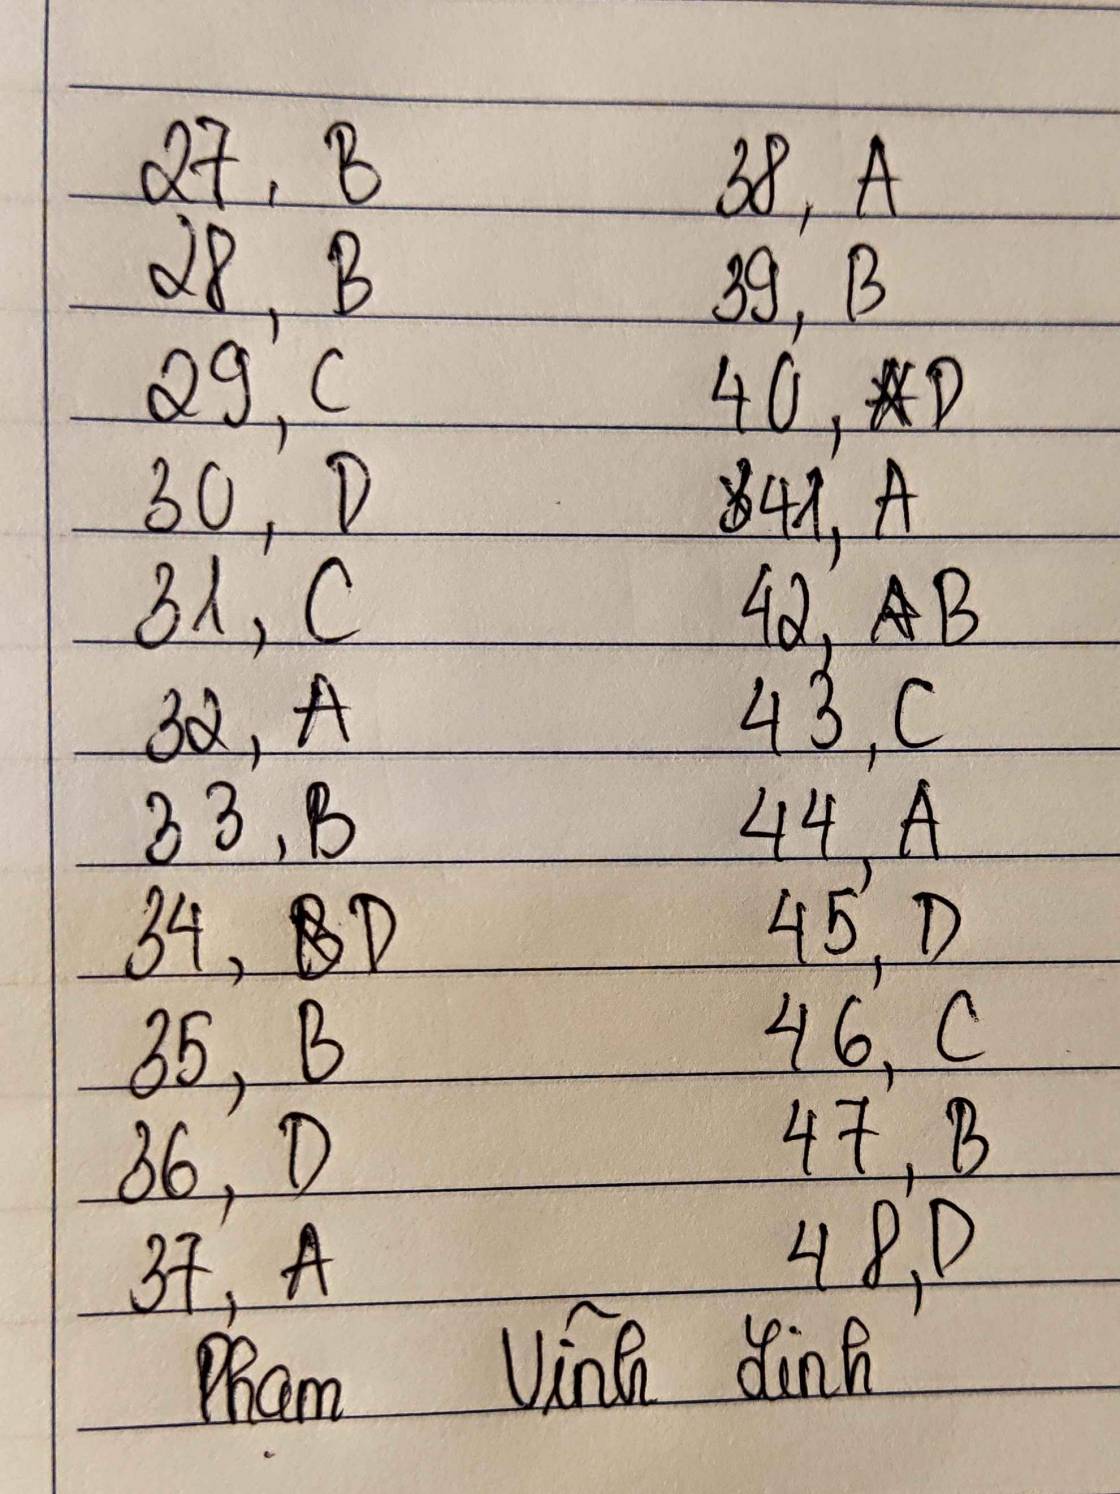 27, B
28, B
29, C
30, D
31, C
32, A
33, B
34, D
35, B
36, D
37, A
38, A
39, B
40, D
41, A
42, B
43, C
44, A
45, D
46, C
47, B
48, D
Phạm Vĩnh Linh